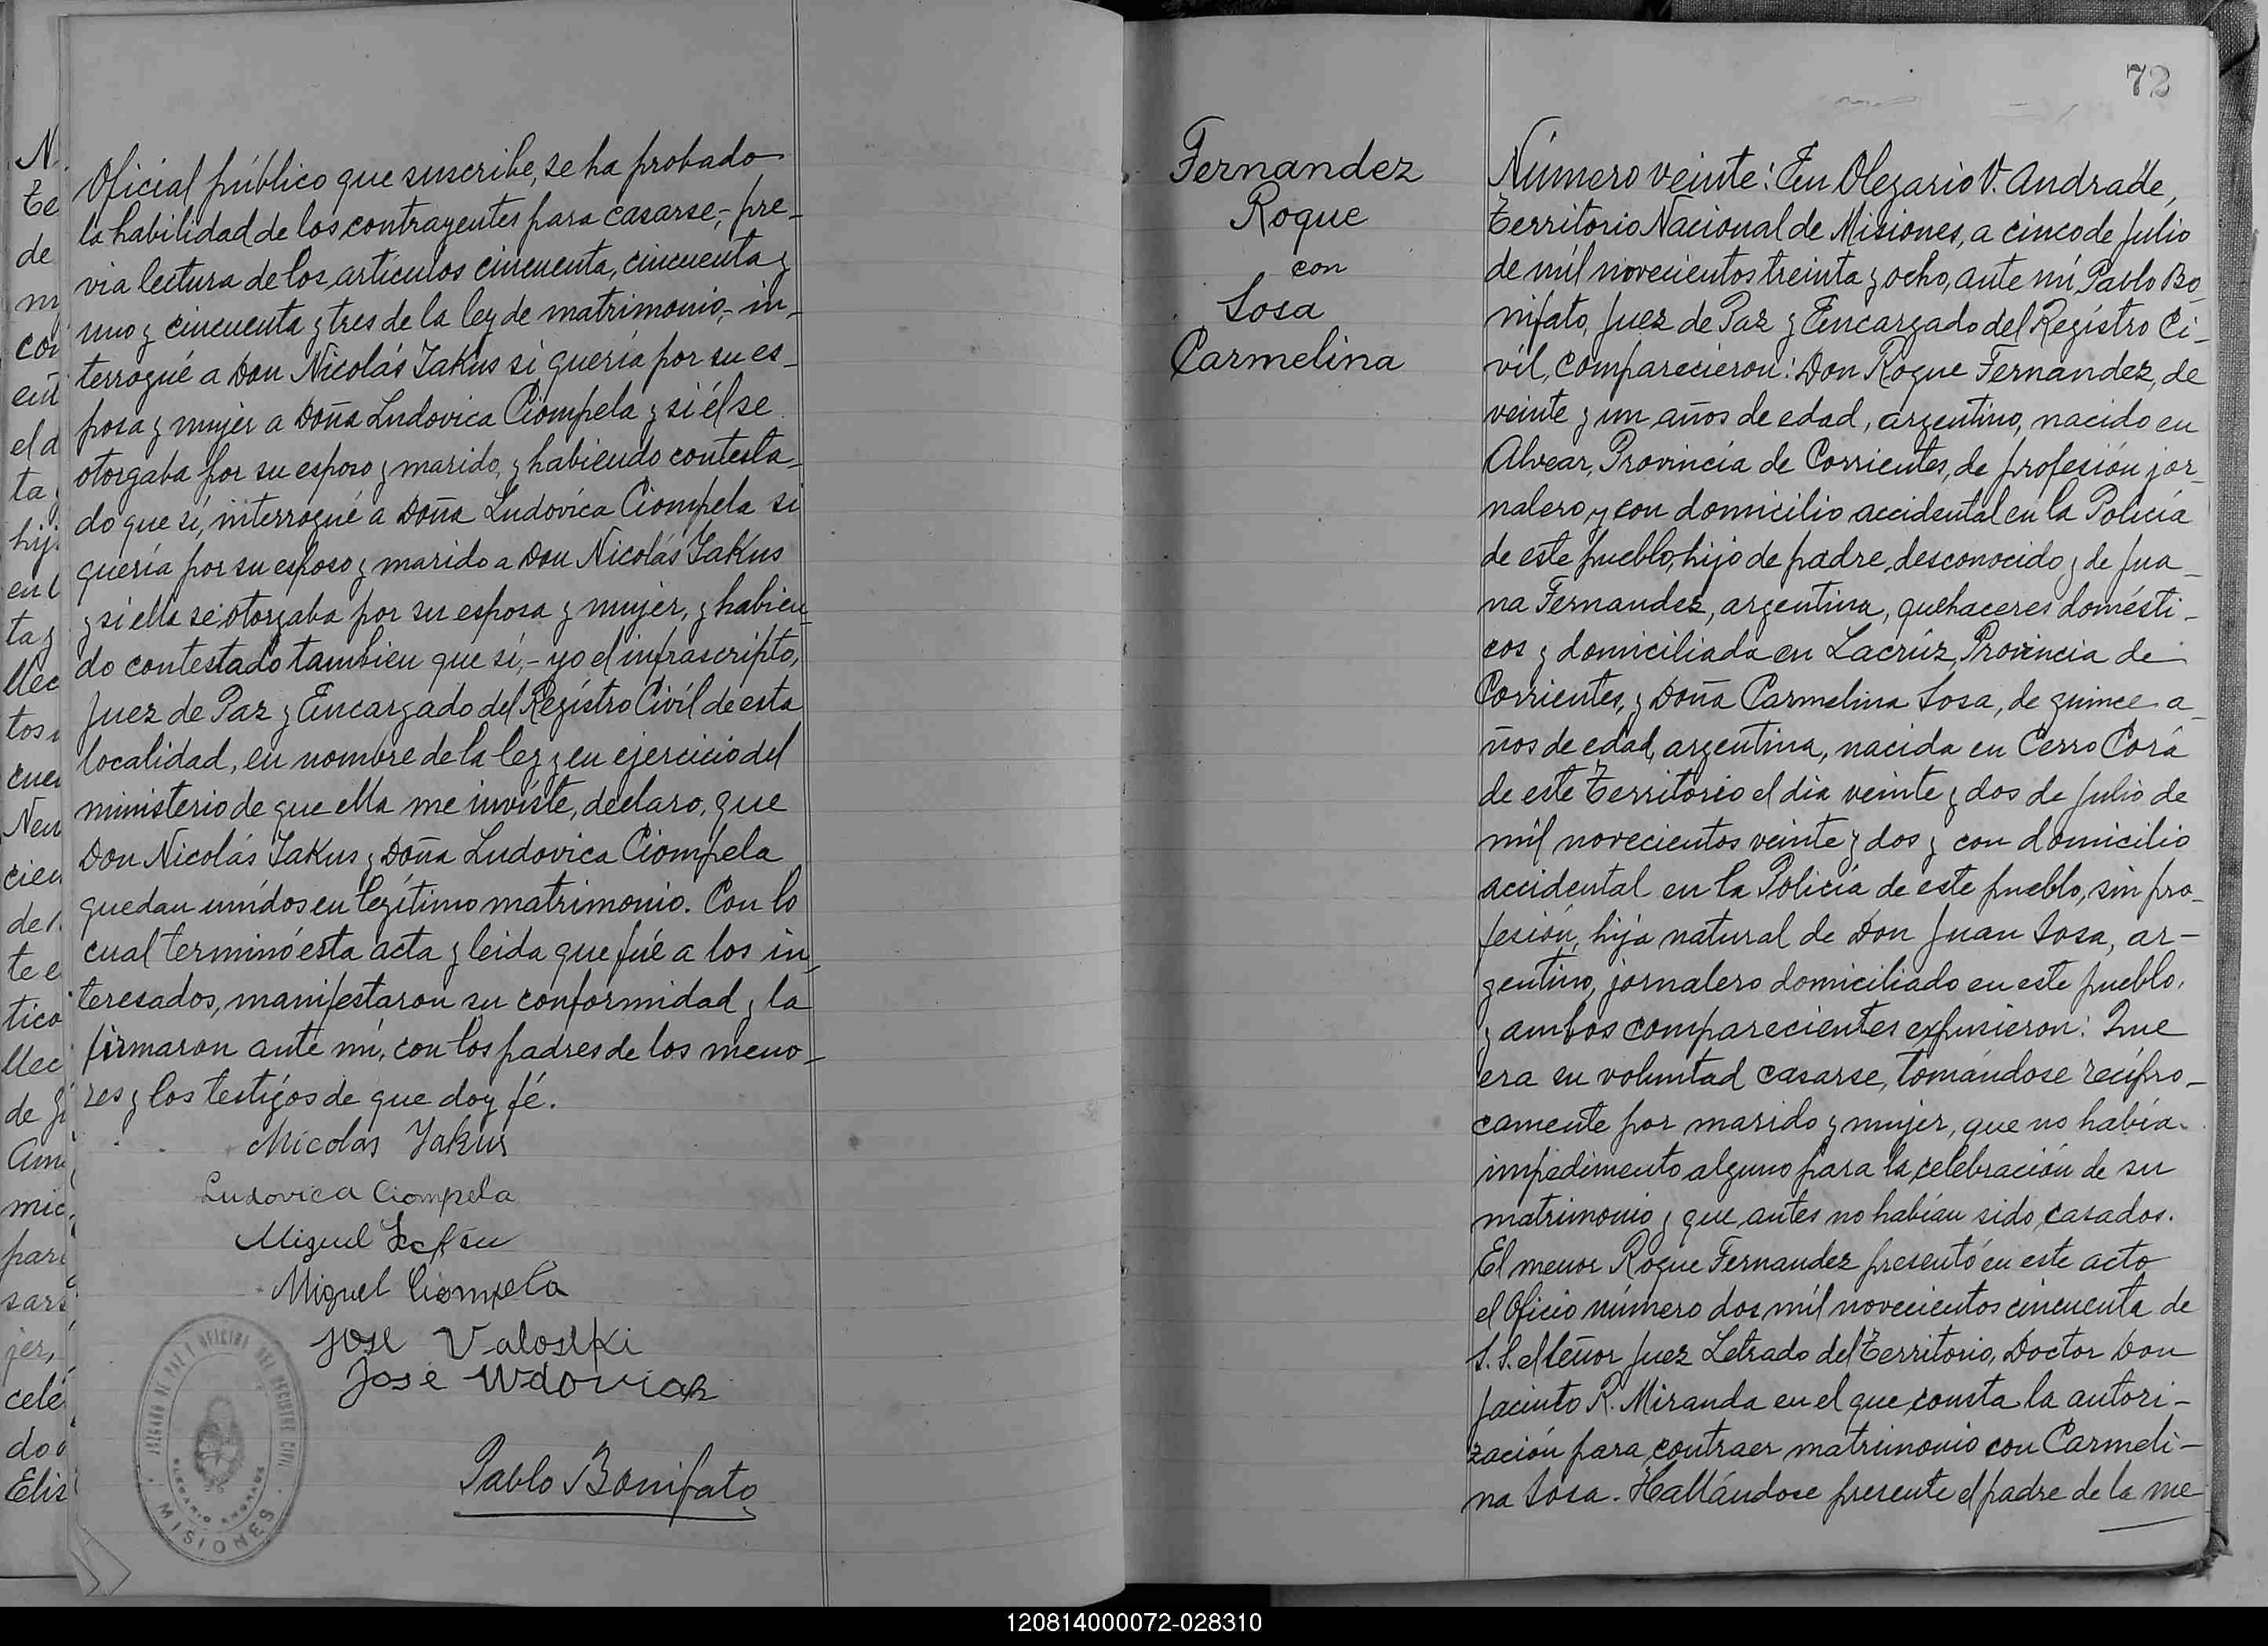 Oficial público que suscribe, se ha probado
la habilidad de los contrayentes para casarse,- pre-
via lectura de los artículos cincuenta, cincuenta y
uno y cincuenta y tres de la ley de matrimonio,- in-
terrogué a Don Nicolás Yakus si quería por su es-
posa y mujer a Doña Ludovica Ciompela y si él se
otorgaba por su esposo y marido, y habiendo contesta-
do que sí, interrogué a Doña Ludovica Ciompela si
quería por su esposo y marido a Don Nicolás Yakus
y si ella se otorgaba por su esposa y mujer, y habien-
do contestado tambien que sí,- yo el infrascripto,
Juez de Paz y Encargado del Registro Civíl de esta
localidad, en nombre de la ley y en ejercicio del
ministerio de que ella me inviste, declaro, que
Don Nicolás Yakus y Doña Ludovica Ciompela
quedan unidos en legítimo matrimonio. Con lo
cual terminó esta acta y leida que fué a los in-
teresados, manifestaron su conformidad y la
firmaron ante mí, con los padres de los meno-
res y los testigos de que doy fé.
Nicolás Yakus
Ludovica Ciompela
Miguel
Miguel Ciompela
José Valoski
José Wdoviak
Pablo Bonifato
JUZGADO DE PAZ Y OFICINA DEL REGISTRO CIVIL
OLEGARIO ANDRADE
MISIONES
N.
Te
de
m
con
el d
ta
hij
en l
ta y
llec
tos
cuen
Neu
cien
de
te e
tico
llec
de
mic
par
sars
jer,
cele
do
Elis
72
Fernandez
Roque
con
Sosa
Carmelina
Número veinte: En Olegario V. Andrade,
Territorio Nacional de Misiones, a cinco de Julio
de mil novecientos treinta y ocho, ante mí Pablo Bo-
nifato, Juez de Paz y Encargado del Registro Ci-
vil, comparecieron: Don Roque Fernandez, de
veinte y un años de edad, argentino, nacido en
Alvear, Provincia de Corrientes, de profesión jor-
nalero y con domicilio accidental en la Policía
de este pueblo, hijo de padre desconocido y de Jua-
na Fernandez, argentina, quehaceres domésti-
cos y domiciliada en Lacrúz, Provincia de
Corrientes, y Doña Carmelina Sosa, de quince a-
ños de edad, argentina, nacida en Cerro Corá
de este Territorio el dia veinte y dos de Julio de
mil novecientos veinte y dos y con domicilio
accidental en la Policía de este pueblo, sin pro-
fesión, hija natural de Don Juan Sosa, ar-
gentino, jornalero domiciliado en este pueblo,
y ambos comparecientes expusieron: Que
era su voluntad casarse, tomándose recípro-
camente por marido y mujer, que no había
impedimento alguno para la celebración de su
matrimonio y que antes no habían sido casados.
El menor Roque Fernandez presentó en este acto
el Oficio número dos mil novecientos cincuenta de
S. S. el Señor Juez Letrado del Territorio, Doctor Don
Jacinto R. Miranda en el que consta la autori-
zación para contraer matrimonio con Carmeli-
na Sosa. Hallándose presente el padre de la me-
120814000072-028310